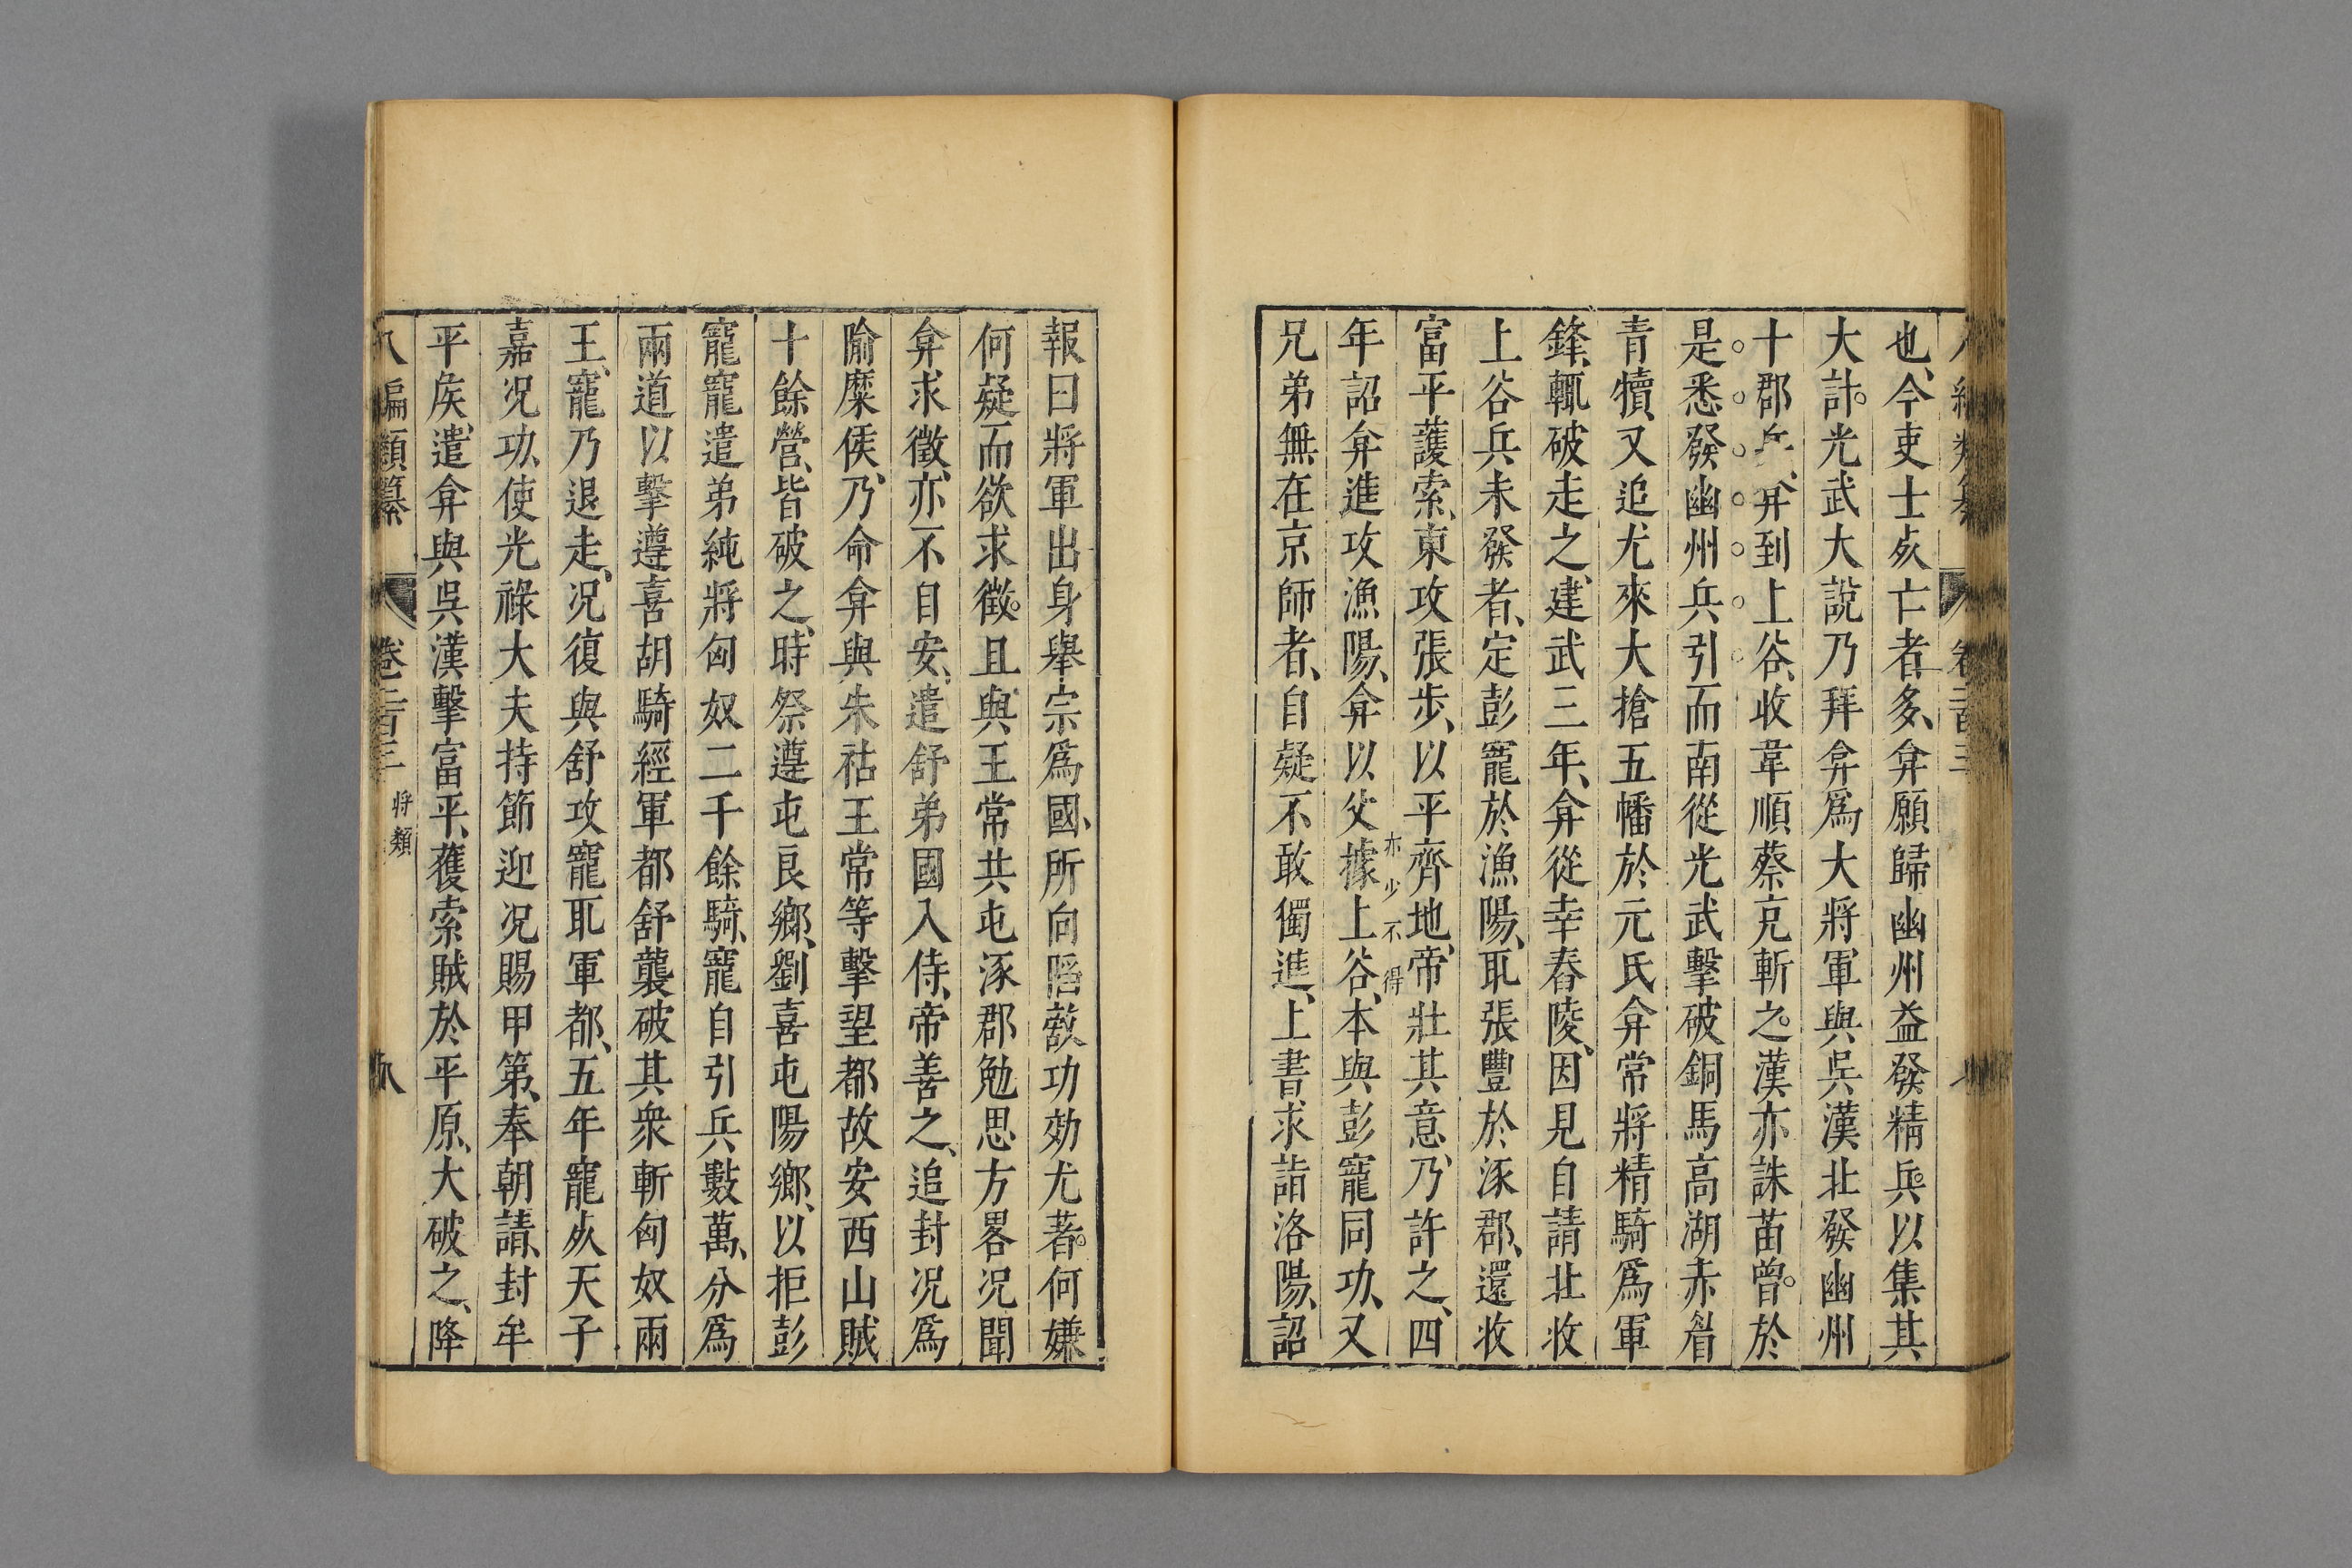 也今吏士㱕亡者多弇願歸幽州益發精兵以集其
大計光武大說乃拜弇爲大將軍與吳漢北發幽州
十郡兵弇到上谷收韋順蔡充斬之漢亦誅苗曾於
是悉發幽州兵引而南從光武擊破銅馬高湖赤眉
青犢又追尤來大搶五幡於元氏弇常將精騎爲軍
鋒輒破走之建武三年弇從幸舂陵因見自請北收
上谷兵未發者定彭寵於漁陽取張豐於涿郡還收
富平護索東攻張步以平齊地帝壯其意乃許之四
亦少不得
年詔弇進攻漁陽弇以父據上谷本與彭寵同功又
兄弟無在京師者自疑不敢獨進上書求詣洛陽詔
報曰將軍出身舉宗爲國所向陷敵功効尤著何嫌
何疑而欲求徵且與王常共屯涿郡勉思方畧况聞
弇求徵亦不自安遣舒弟國入侍帝善之追封况爲
隃糜侯乃命弇與朱祜王常等擊望都故安西山賊
十餘營皆破之時祭遵屯良鄉劉喜屯陽鄉以拒彭
寵寵遣弟純將匈奴二千餘騎寵自引兵數萬分爲
兩道以擊遵喜胡騎經軍都舒襲破其衆斬匈奴兩
王寵乃退走况復與舒攻寵取軍都五年寵死天子
嘉况功使光祿大夫持節迎况賜甲第奉朝請封牟
平侯遣弇與吳漢擊富平獲索賊於平原大破之降
八編類纂 卷二百三 將類